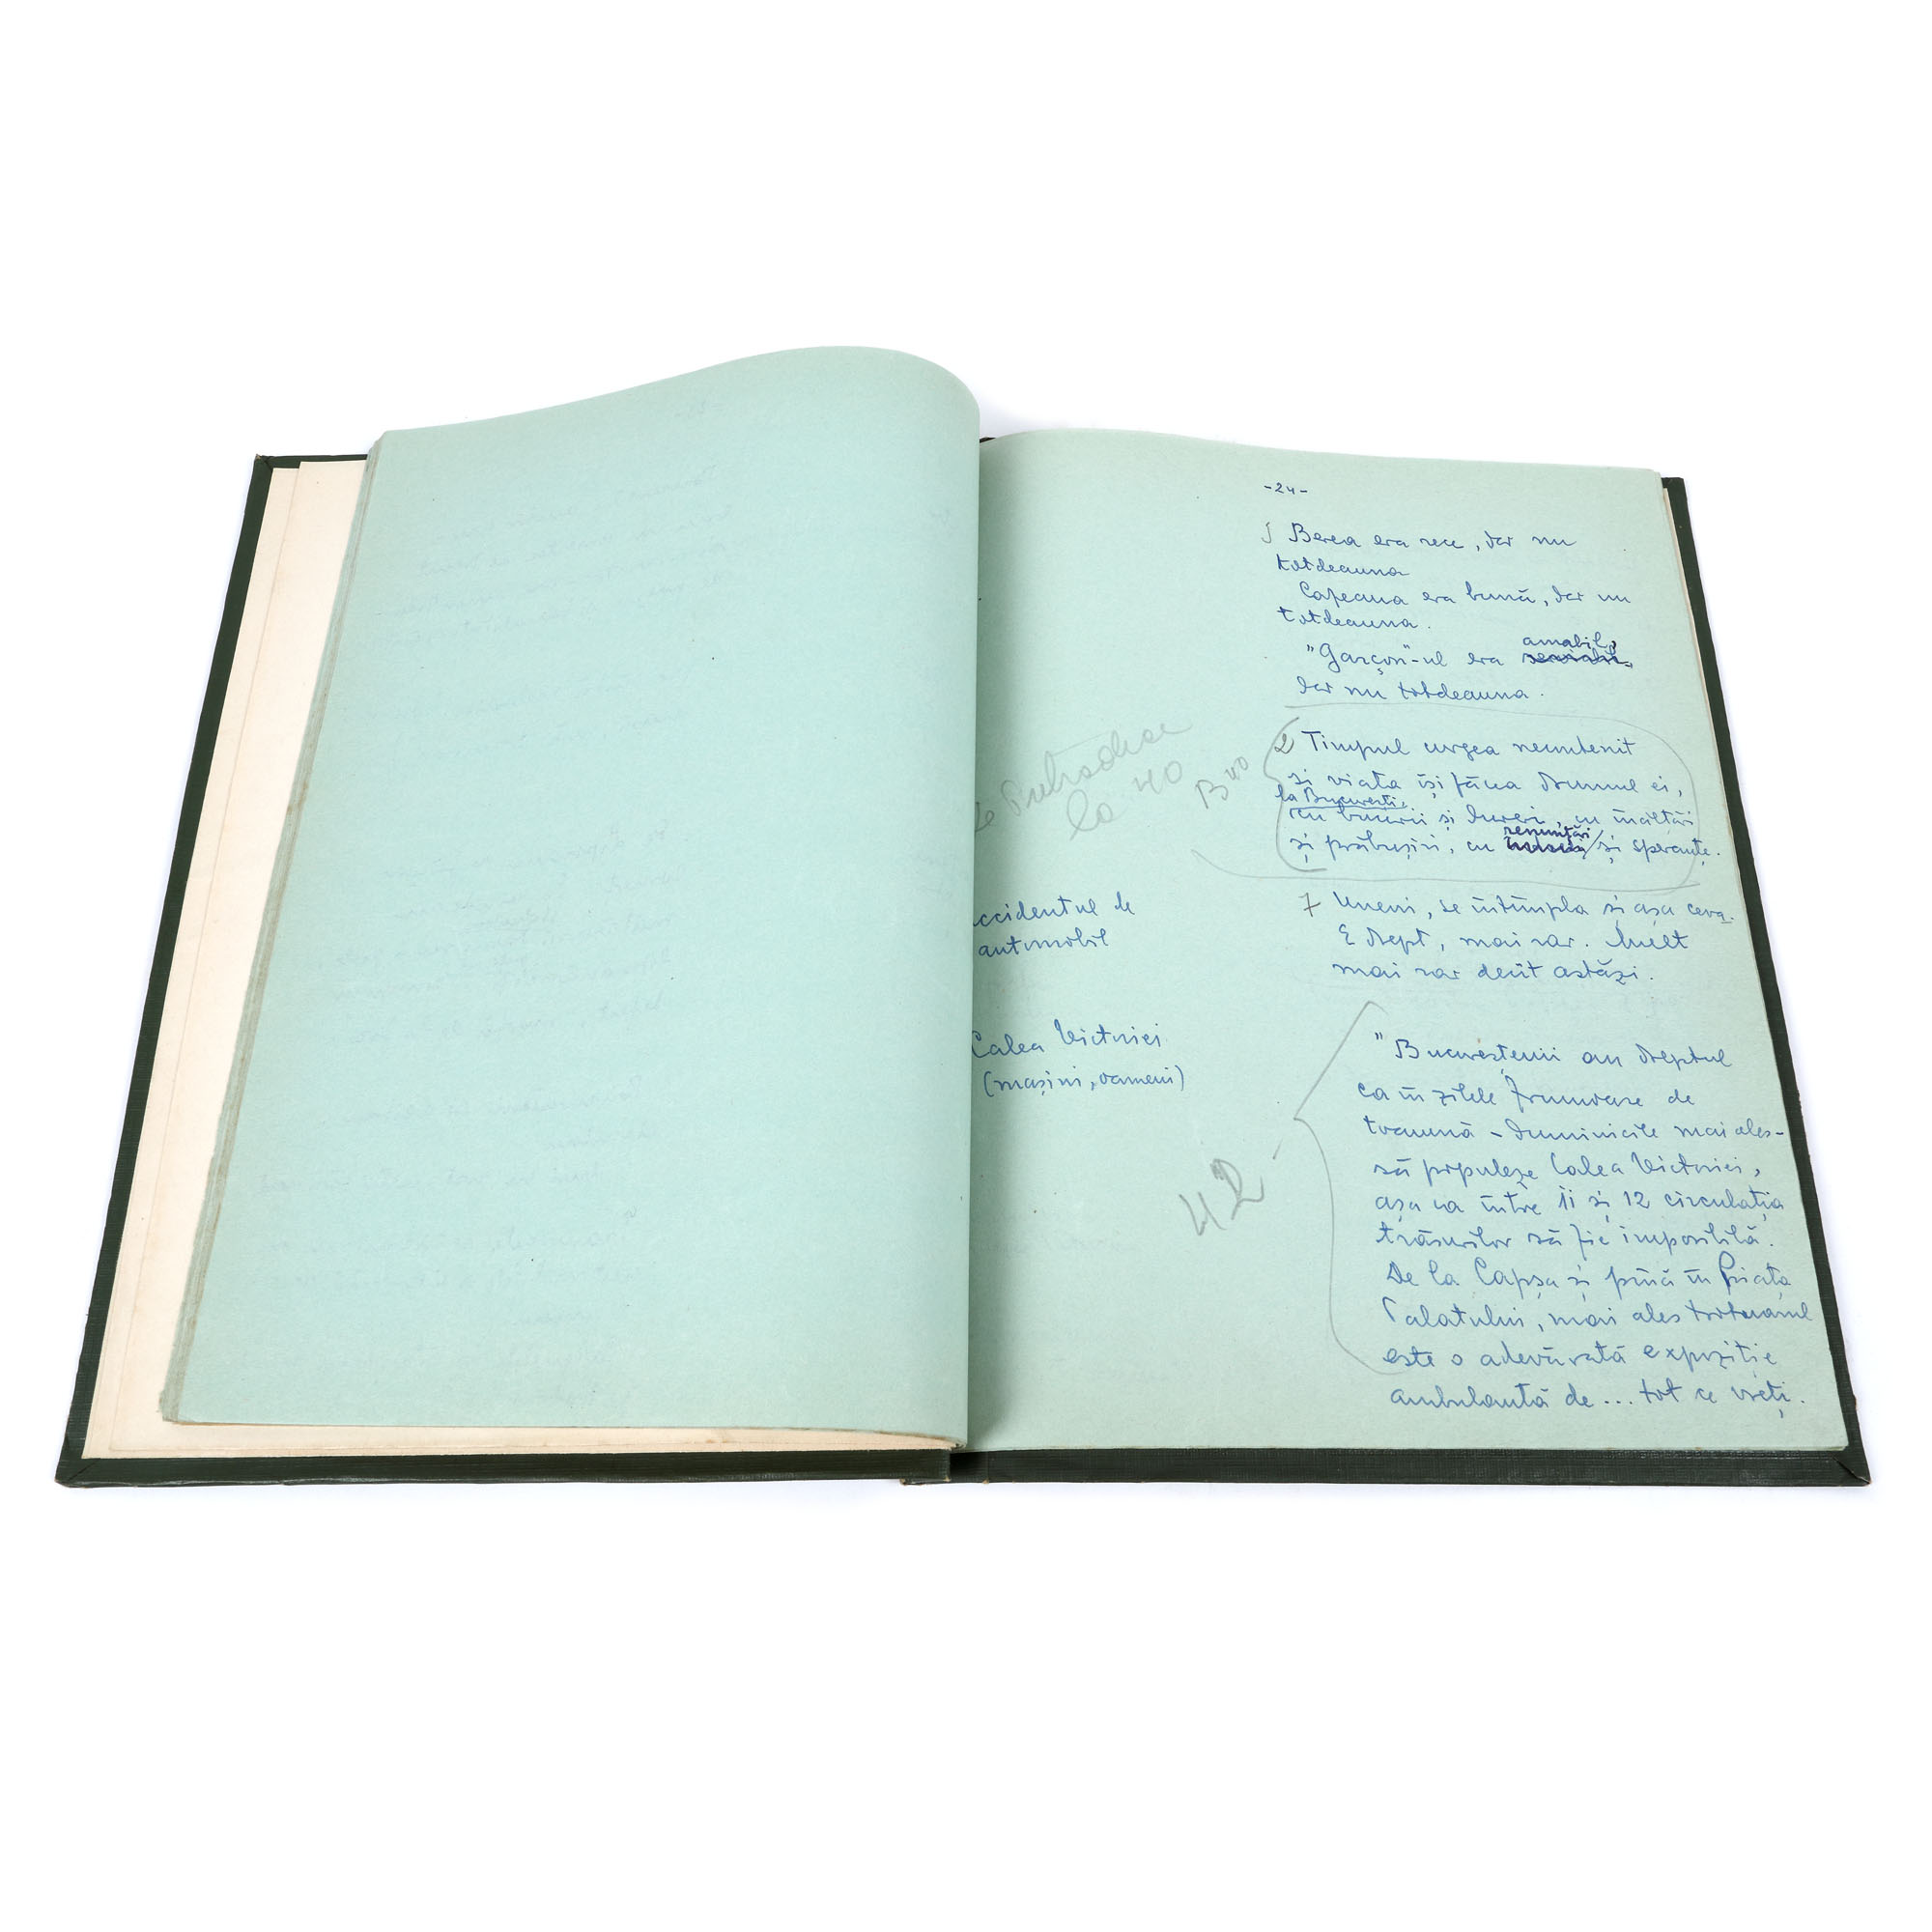 -24-
Berea era rece, dar nu
totdeauna
Cafeaua era bună, dar nu
totdeauna.
amabil,
"Garçon"-ul era
dar nu totdeauna.
2 Timpul curgea neîntenit
și viața își făcea drumul ei,
la București,
cu bucurii și dureri, cu înălțări
renunțări
și prăbușiri, cu și speranțe.
la 40
B 40
accidentul de
automobil
7 Uneori, se întîmpla și așa ceva.
E drept, mai rar. Mult
mai rar decît astăzi.
Calea Victoriei
(mașini, oameni)
42 -
"Bucureștenii au dreptul
ca în zilele frumoase de
toamnă - duminicile mai ales -
să populeze Calea Victoriei,
așa ca între 11 și 12 circulația
trăsurilor să fie imposibilă.
De la Capșa și pînă în Piața
Palatului, mai ales trotuarul
este o adevărată expoziție
ambulantă de ... tot ce vreți.